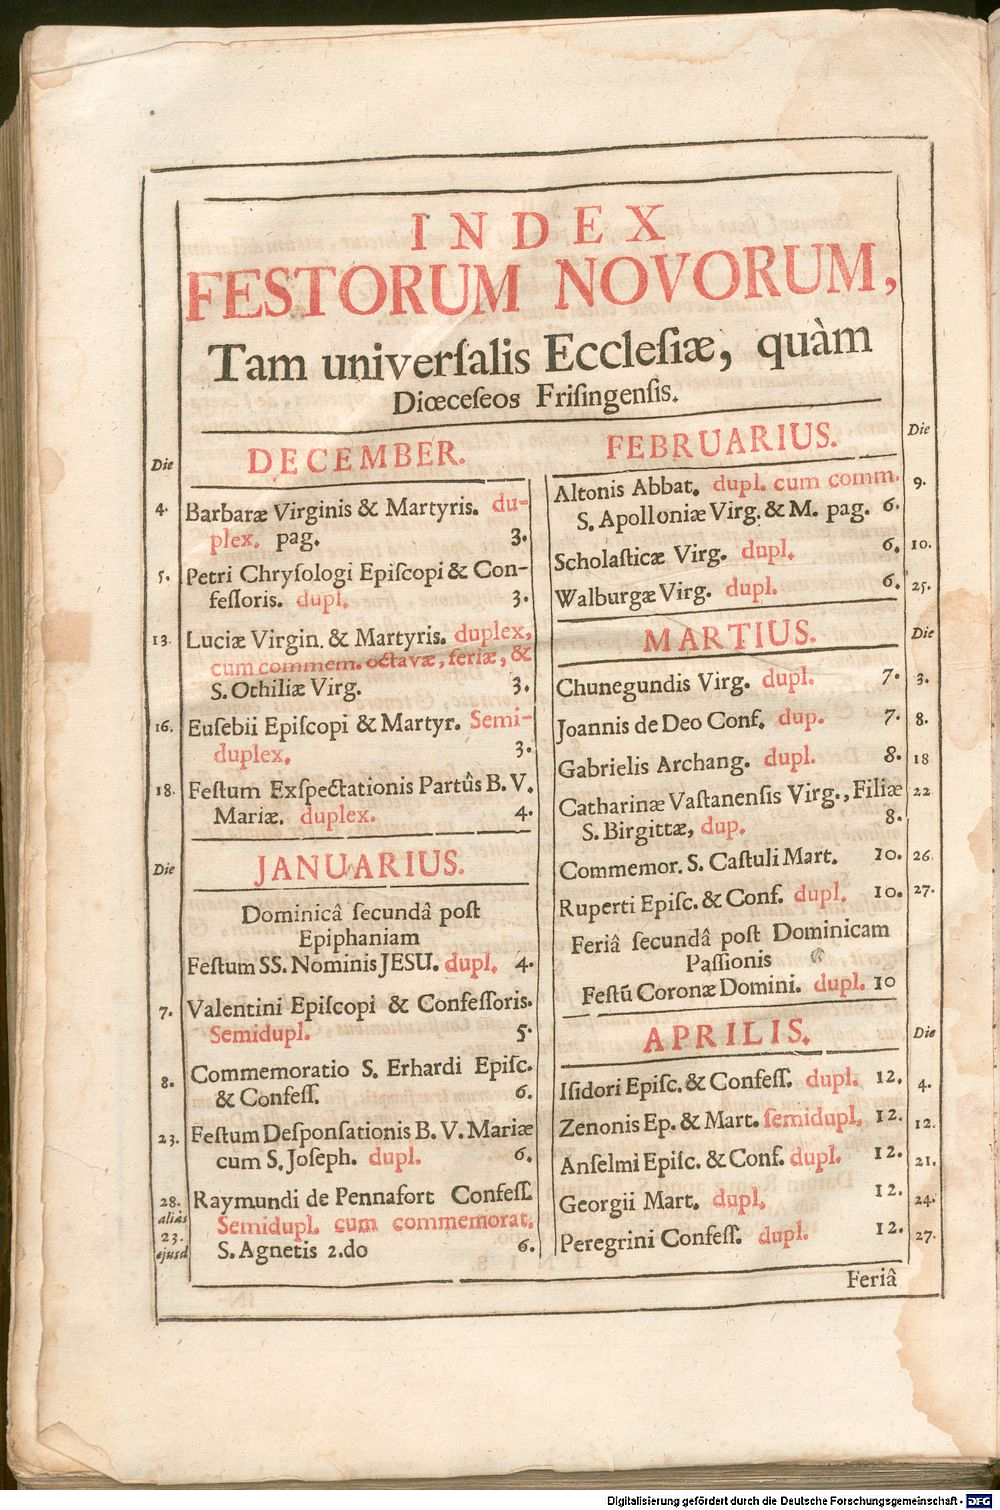 INDEX
FESTORUM NOVORUM,
Tam univerſalis Eccleſiæ, quàm
Diœceſeos Friſingenſis.
Die DECEMBER.
4. Barbaræ Virginis & Martyris. du-
plex. pag. 3.
5. Petri Chryſologi Epiſcopi & Con-
feſſoris. dupl. 3.
13. Luciæ Virgin. & Martyris. duplex,
cum commem. octavæ, feriæ, &
S. Othiliæ Virg. 3.
16. Euſebii Epiſcopi & Martyr. Semi-
duplex. 3.
18. Feſtum Exſpectationis Partûs B. V.
Mariæ. duplex. 4.
Die JANUARIUS.
Dominicâ ſecundâ poſt
Epiphaniam
Feſtum SS. Nominis JESU. dupl. 4.
7. Valentini Epiſcopi & Confeſſoris.
Semidupl. 5.
8. Commemoratio S. Erhardi Epiſc.
& Confeſſ. 6.
23. Feſtum Deſponſationis B. V. Mariæ
cum S. Joſeph. dupl. 6.
28. Raymundi de Pennafort Confeſſ.
aliàs Semidupl. cum commemorat.
23. S. Agnetis 2.do 6.
ejusd
FEBRUARIUS. Die
Altonis Abbat. dupl. cum comm. 9.
S. Apolloniæ Virg. & M. pag. 6.
Scholaſticæ Virg. dupl. 6. 10.
Walburgæ Virg. dupl. 6. 25.
MARTIUS. Die
Chunegundis Virg. dupl. 7. 3.
Joannis de Deo Conf. dup. 7. 8.
Gabrielis Archang. dupl. 8. 18
Catharinæ Vaſtanenſis Virg., Filiæ 22
S. Birgittæ, dup. 8.
Commemor. S. Caſtuli Mart. 10. 26.
Ruperti Epiſc. & Conf. dupl. 10. 27.
Feriâ ſecundâ poſt Dominicam
Paſſionis
Feſtū Coronæ Domini. dupl. 10
APRILIS. Die
Iſidori Epiſc. & Confeſſ. dupl. 12. 4.
Zenonis Ep. & Mart. ſemidupl. 12. 12.
Anſelmi Epiſc. & Conf. dupl. 12. 21.
Georgii Mart. dupl. 12. 24.
Peregrini Confeſſ. dupl. 12. 27.
Feriâ
Digitalisierung gefördert durch die Deutsche Forschungsgemeinschaft - DFG